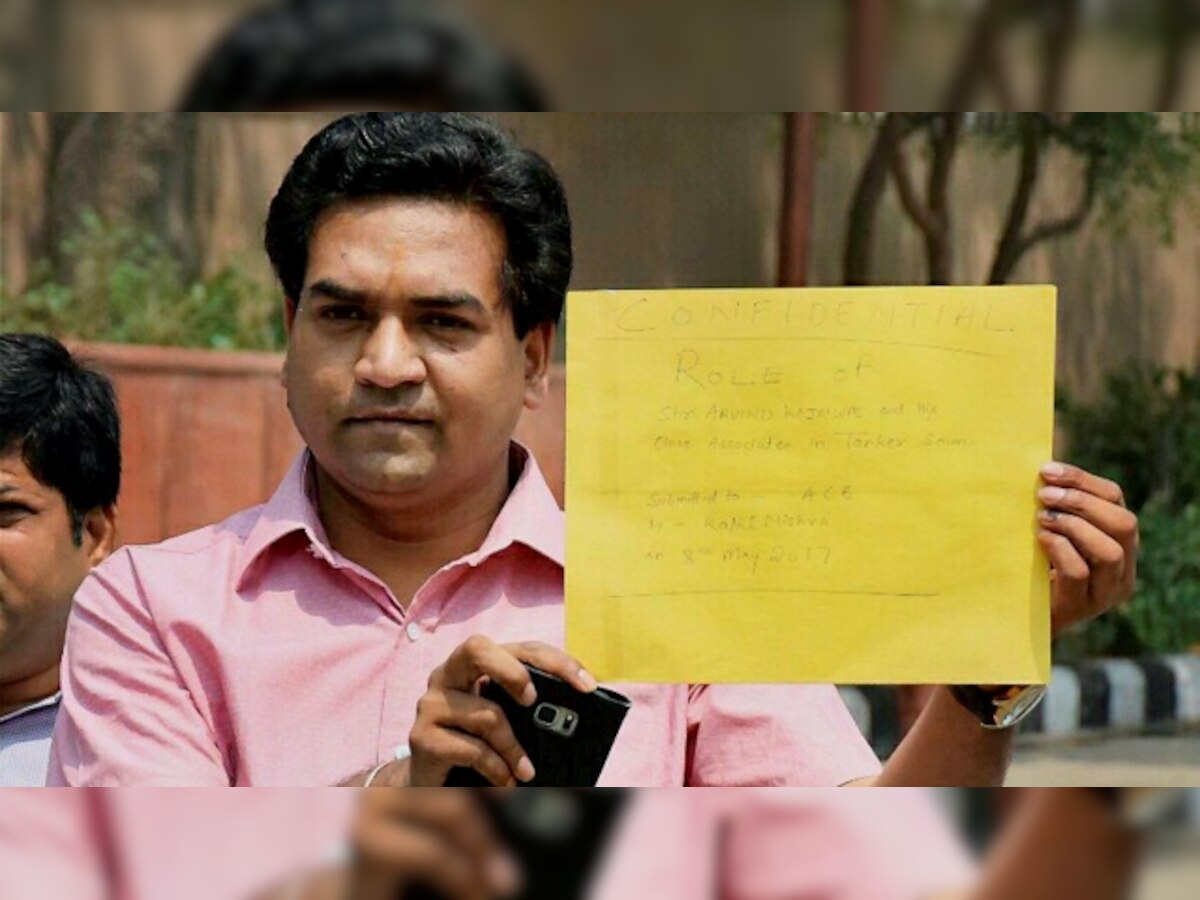 CONFIDENTIAL
ROLE OF
Shri ARVIND KEJRIWAL and His
Close Associates in Tanker Scam
Submitted to ACB
by - KAPIL Mishra
on 8th May 2017